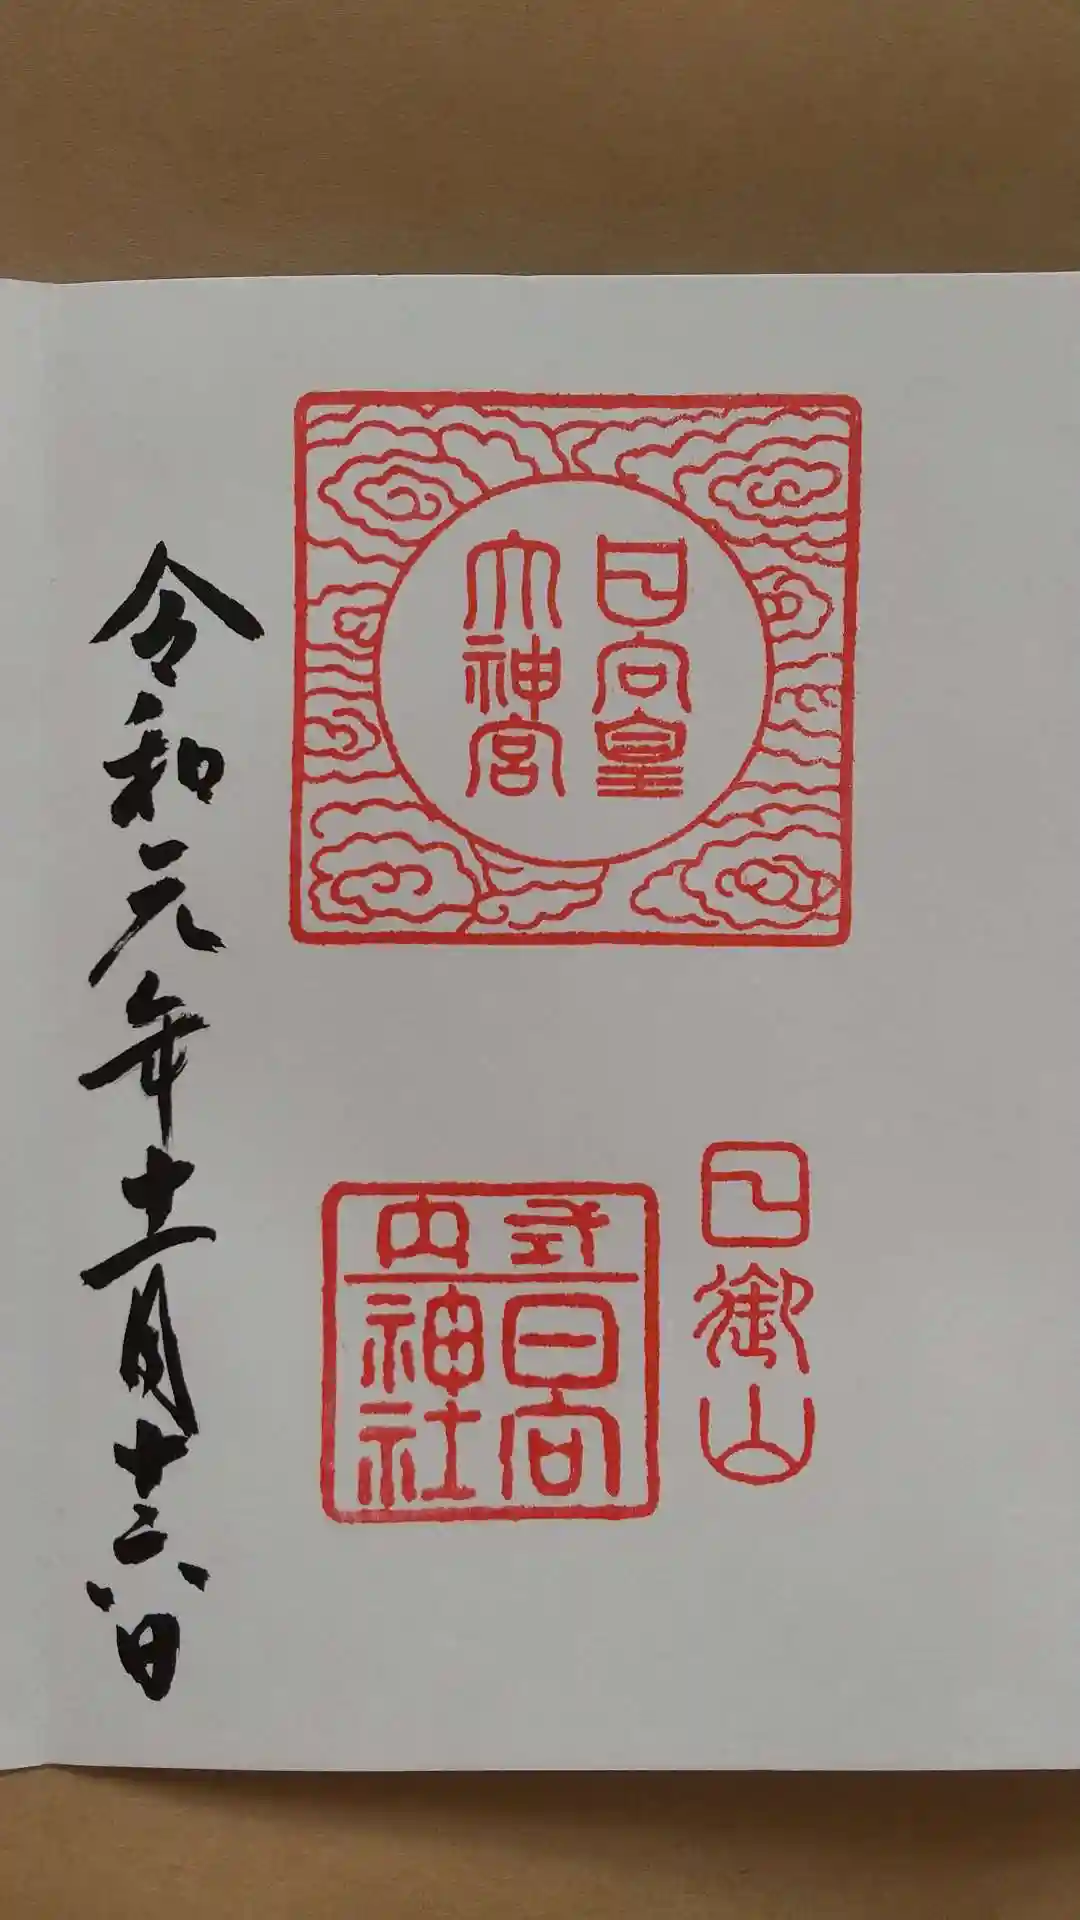 日向皇
大神宮
日御山
式内
日向
神社
令和元年十一月十六日